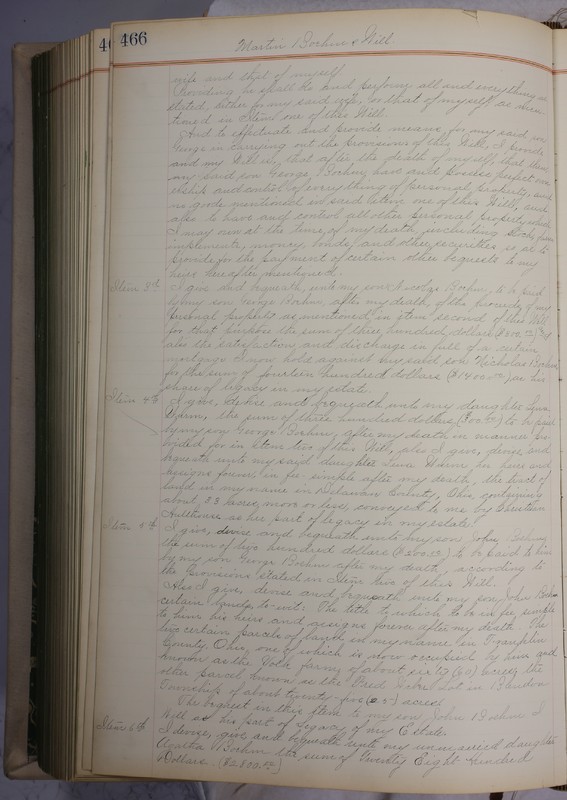 466
Martin Boehm's Will.
wife and that of myself
Providing he shall do and perform all and everything as
stated, either for my said wife, or that of myself, as men
tioned in Item one of this Will.
And to effectuate and provide means for my said son
George in carrying out the provisions of this Will, I provide
and my Will is, that after the death of myself, that then
my said son George Boehm, have and possess perfect own
ership and control of everything of personal property, and
no goods mentioned in said Item one of this Will, and
also to have and control all other personal property which
I may own at the time of my death, including stock, farm
implements, money, bonds, and other securities so as to
provide for the payment of certain other bequests to my
heirs hereafter mentioned.
Item 3rd I give and bequeath, unto my son Nicolas Boehm, to be paid
by my son George Boehm, after my death, of the proceeds of my
personal property as mentioned in item second of this Will
for that purpose the sum of three hundred dollars ($300.00)
also the satisfaction and discharge in full of a certain
mortgage I now hold against my said son Nicholas Boehm
for the sum of fourteen hundred dollars ($1400.00) as his
share of legacy in my estate.
Item 4th I give, devise and bequeath unto my daughter Lena
the sum of three hundred dollars (300.00) to be paid
by my son George Boehm, after my death in manner pro
vided for in Item two of this Will, also I give, devise and
bequeath unto my said daughter Lena her heirs and
assigns forever, in fee simple after my death, the tract of
land in my name in Delaware County, Ohio, containing
about 33 acres more or less, conveyed to me by Christian
as her part of legacy in my estate.
Item 5th I give, devise and bequeath unto my son John Boehm,
the sum of two hundred dollars ($200.00) to be paid to him
by my son George Boehm after my death, according to
the provisions stated in Item two of this Will.
Also I give, devise and bequeath unto my son John Boehm
certain lands, to-wit: The title to which to be in fee simple
to him his heirs and assigns forever after my death. The
two certain parcels of land in my name in Franklin
County, Ohio, one of which is now occupied by him and
known as the farm, of about sixty (60) acres; the
other parcel known as the Lot in
Township of about twenty-five (25) acres.
The bequest in this Item to my son John Boehm I
Will as his part of Legacy of my Estate.
Item 6th I devise, give and bequeath unto my unmarried daughter
Agatha Boehm the sum of Twenty Eight Hundred
Dollars. ($2800.00)